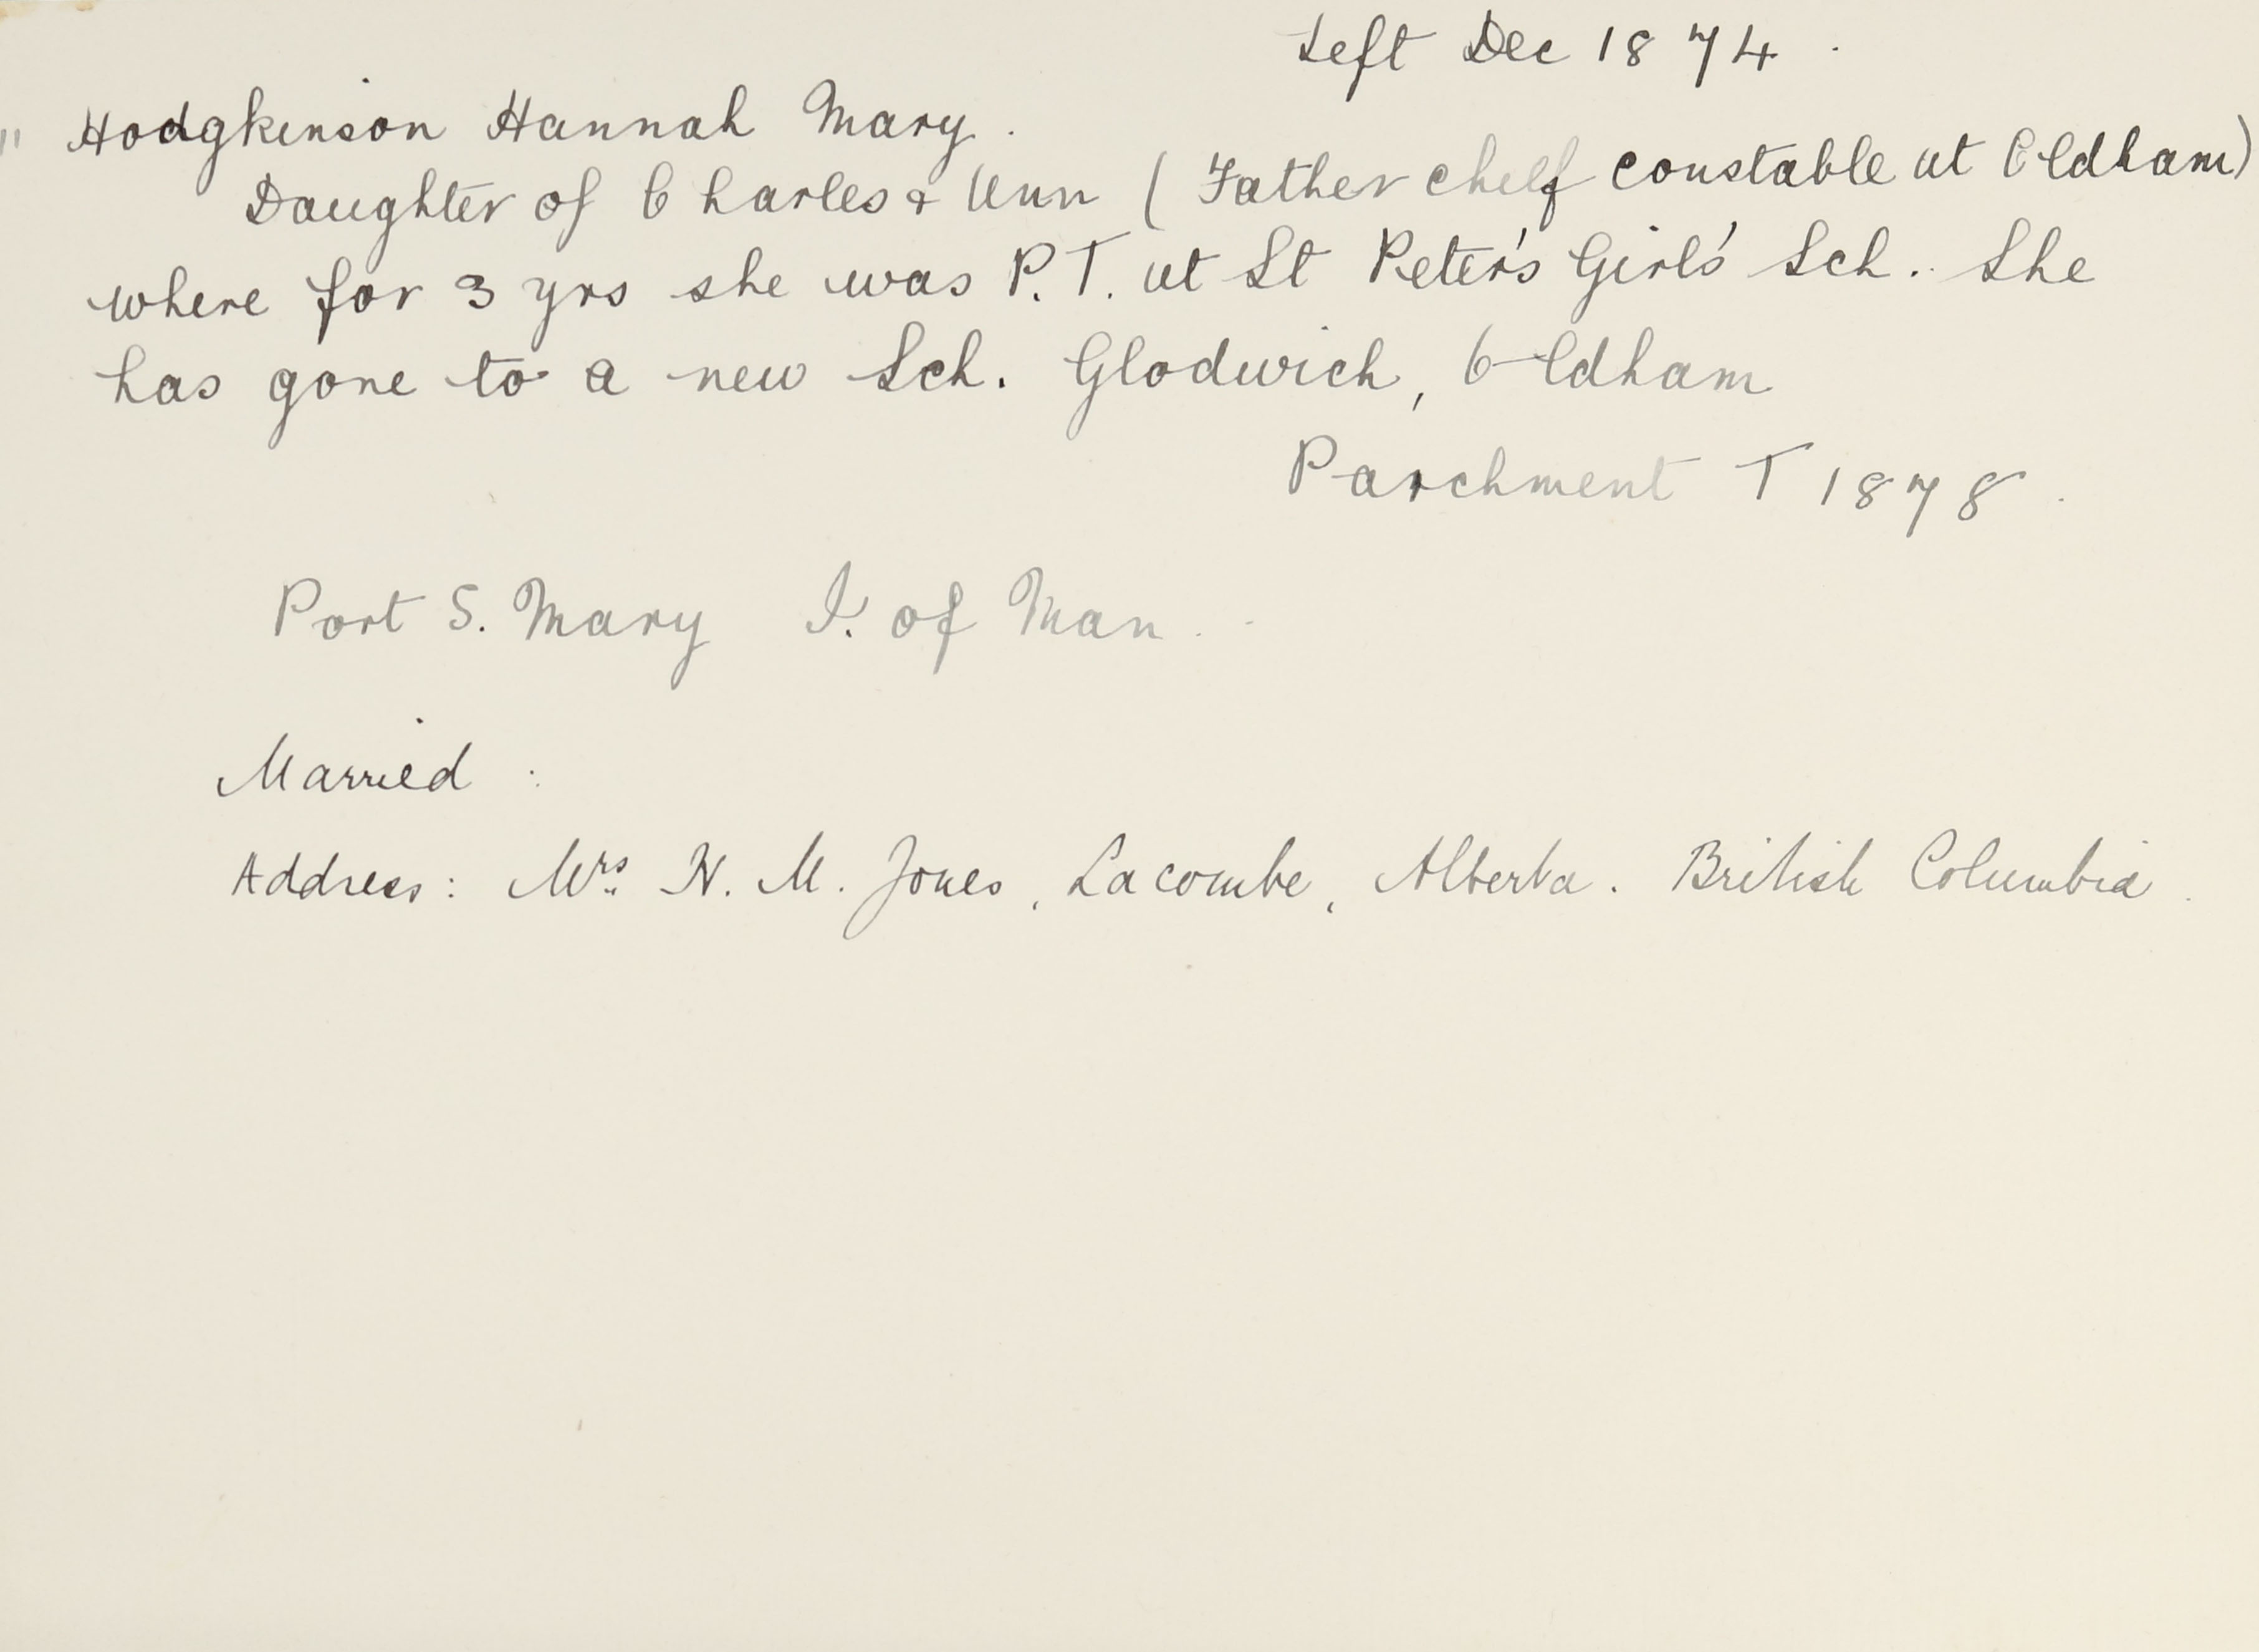 Left Dec 1874.
" Hodgkinson Hannah Mary.
Daughter of Charles & Ann (Father chief constable at Oldham)
where for 3 yrs she was P.T. at St Peter's Girls' Sch. She
has gone to a new Sch. Glodwich, Oldham
Parchment T 1878.
Port S. Mary I. of Man.
Married :
Address: Mrs H. M. Jones, Lacombe, Alberta. British Columbia.